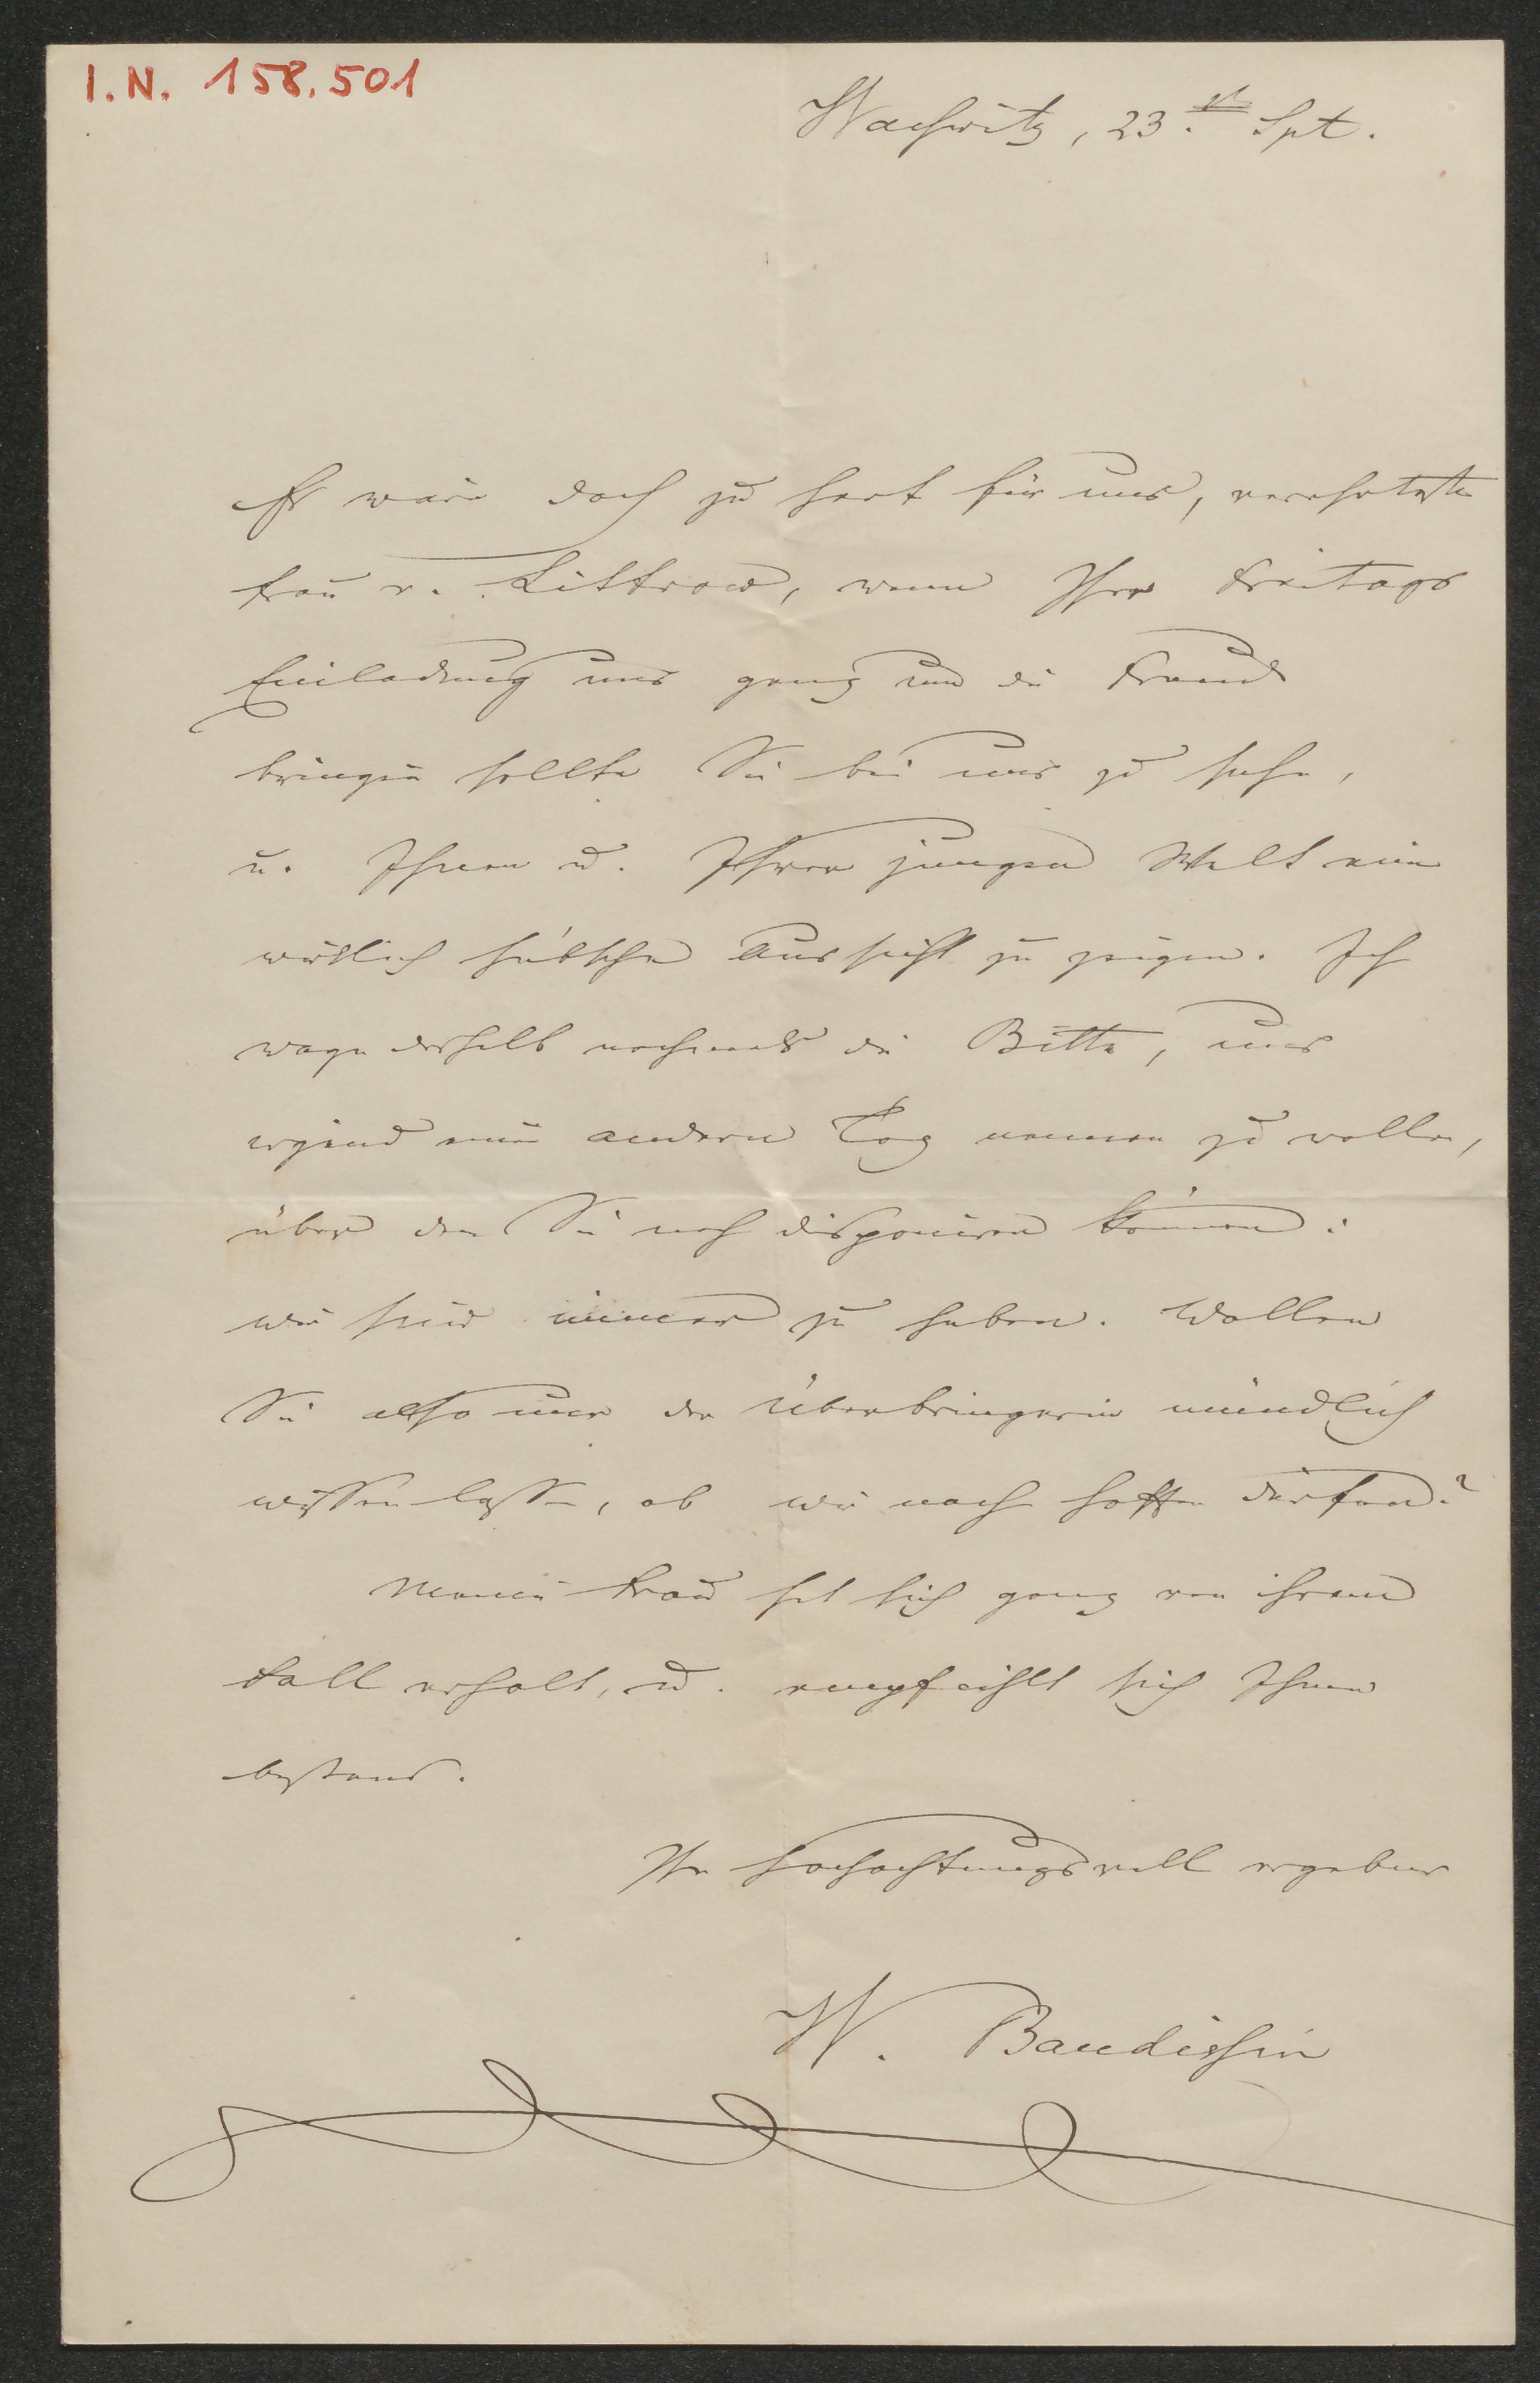 I.N. 158.501
Wachwitz, 23.st Spt.
Es wäre doch zu hart für uns, verehrteste
Frau v. Littrow, wenn Ihre Freitags
Einladung uns ganz um die Freude
bringen sollte Sie bei uns zu sehn,
u. Ihnen u. Ihrer jungen Welt eine
wirklich hübsche Aussicht zu zeigen. Ich
wage deshalb nochmals die Bitte, uns
irgend einen andern Tag nennen zu wollen,
über den Sie noch disponiren können:
wir sind immer zu haben. Wollen
Sie also nur der Überbringerin mündlich
wissen lassen, ob wir noch hoffen dürfen?
Meine Frau hat sich ganz von ihrem
Fall erholt, u. empfiehlt sich Ihnen
bestens.
Ihr hochachtungsvoll ergebner
W. Baudissin